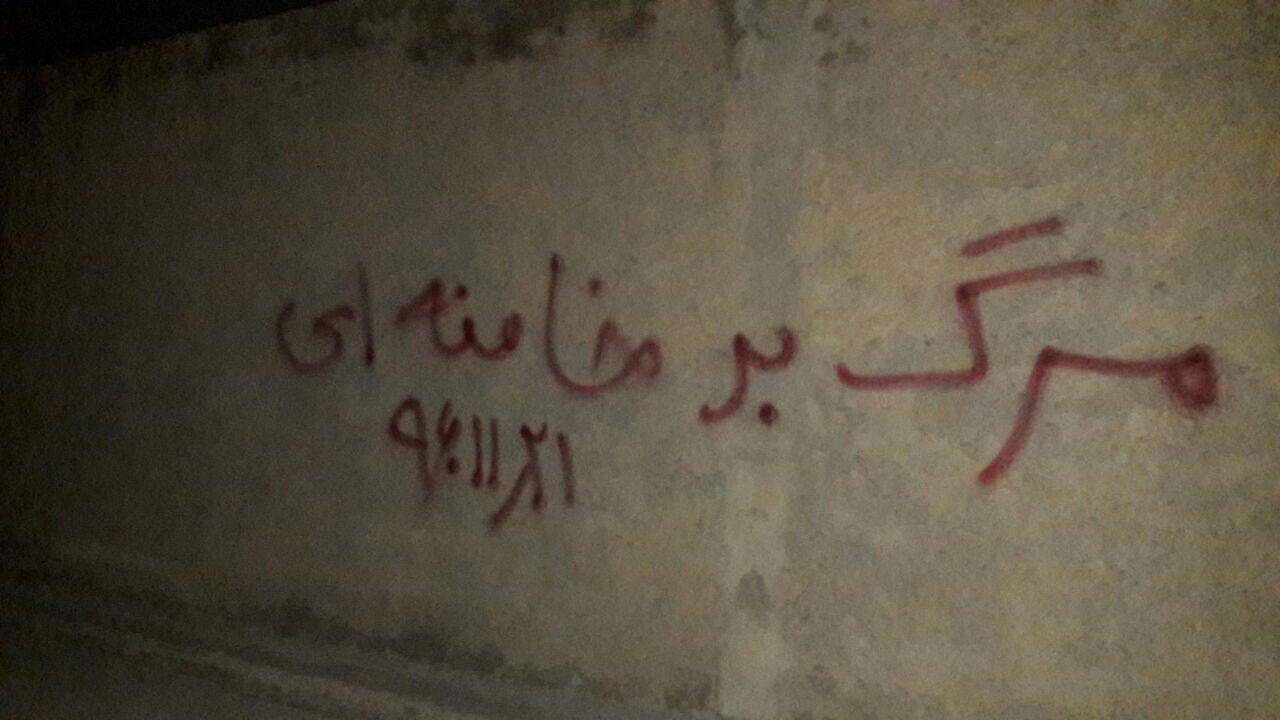 مرگ بر خامنه ای
۹۶.۱۱/۲۱